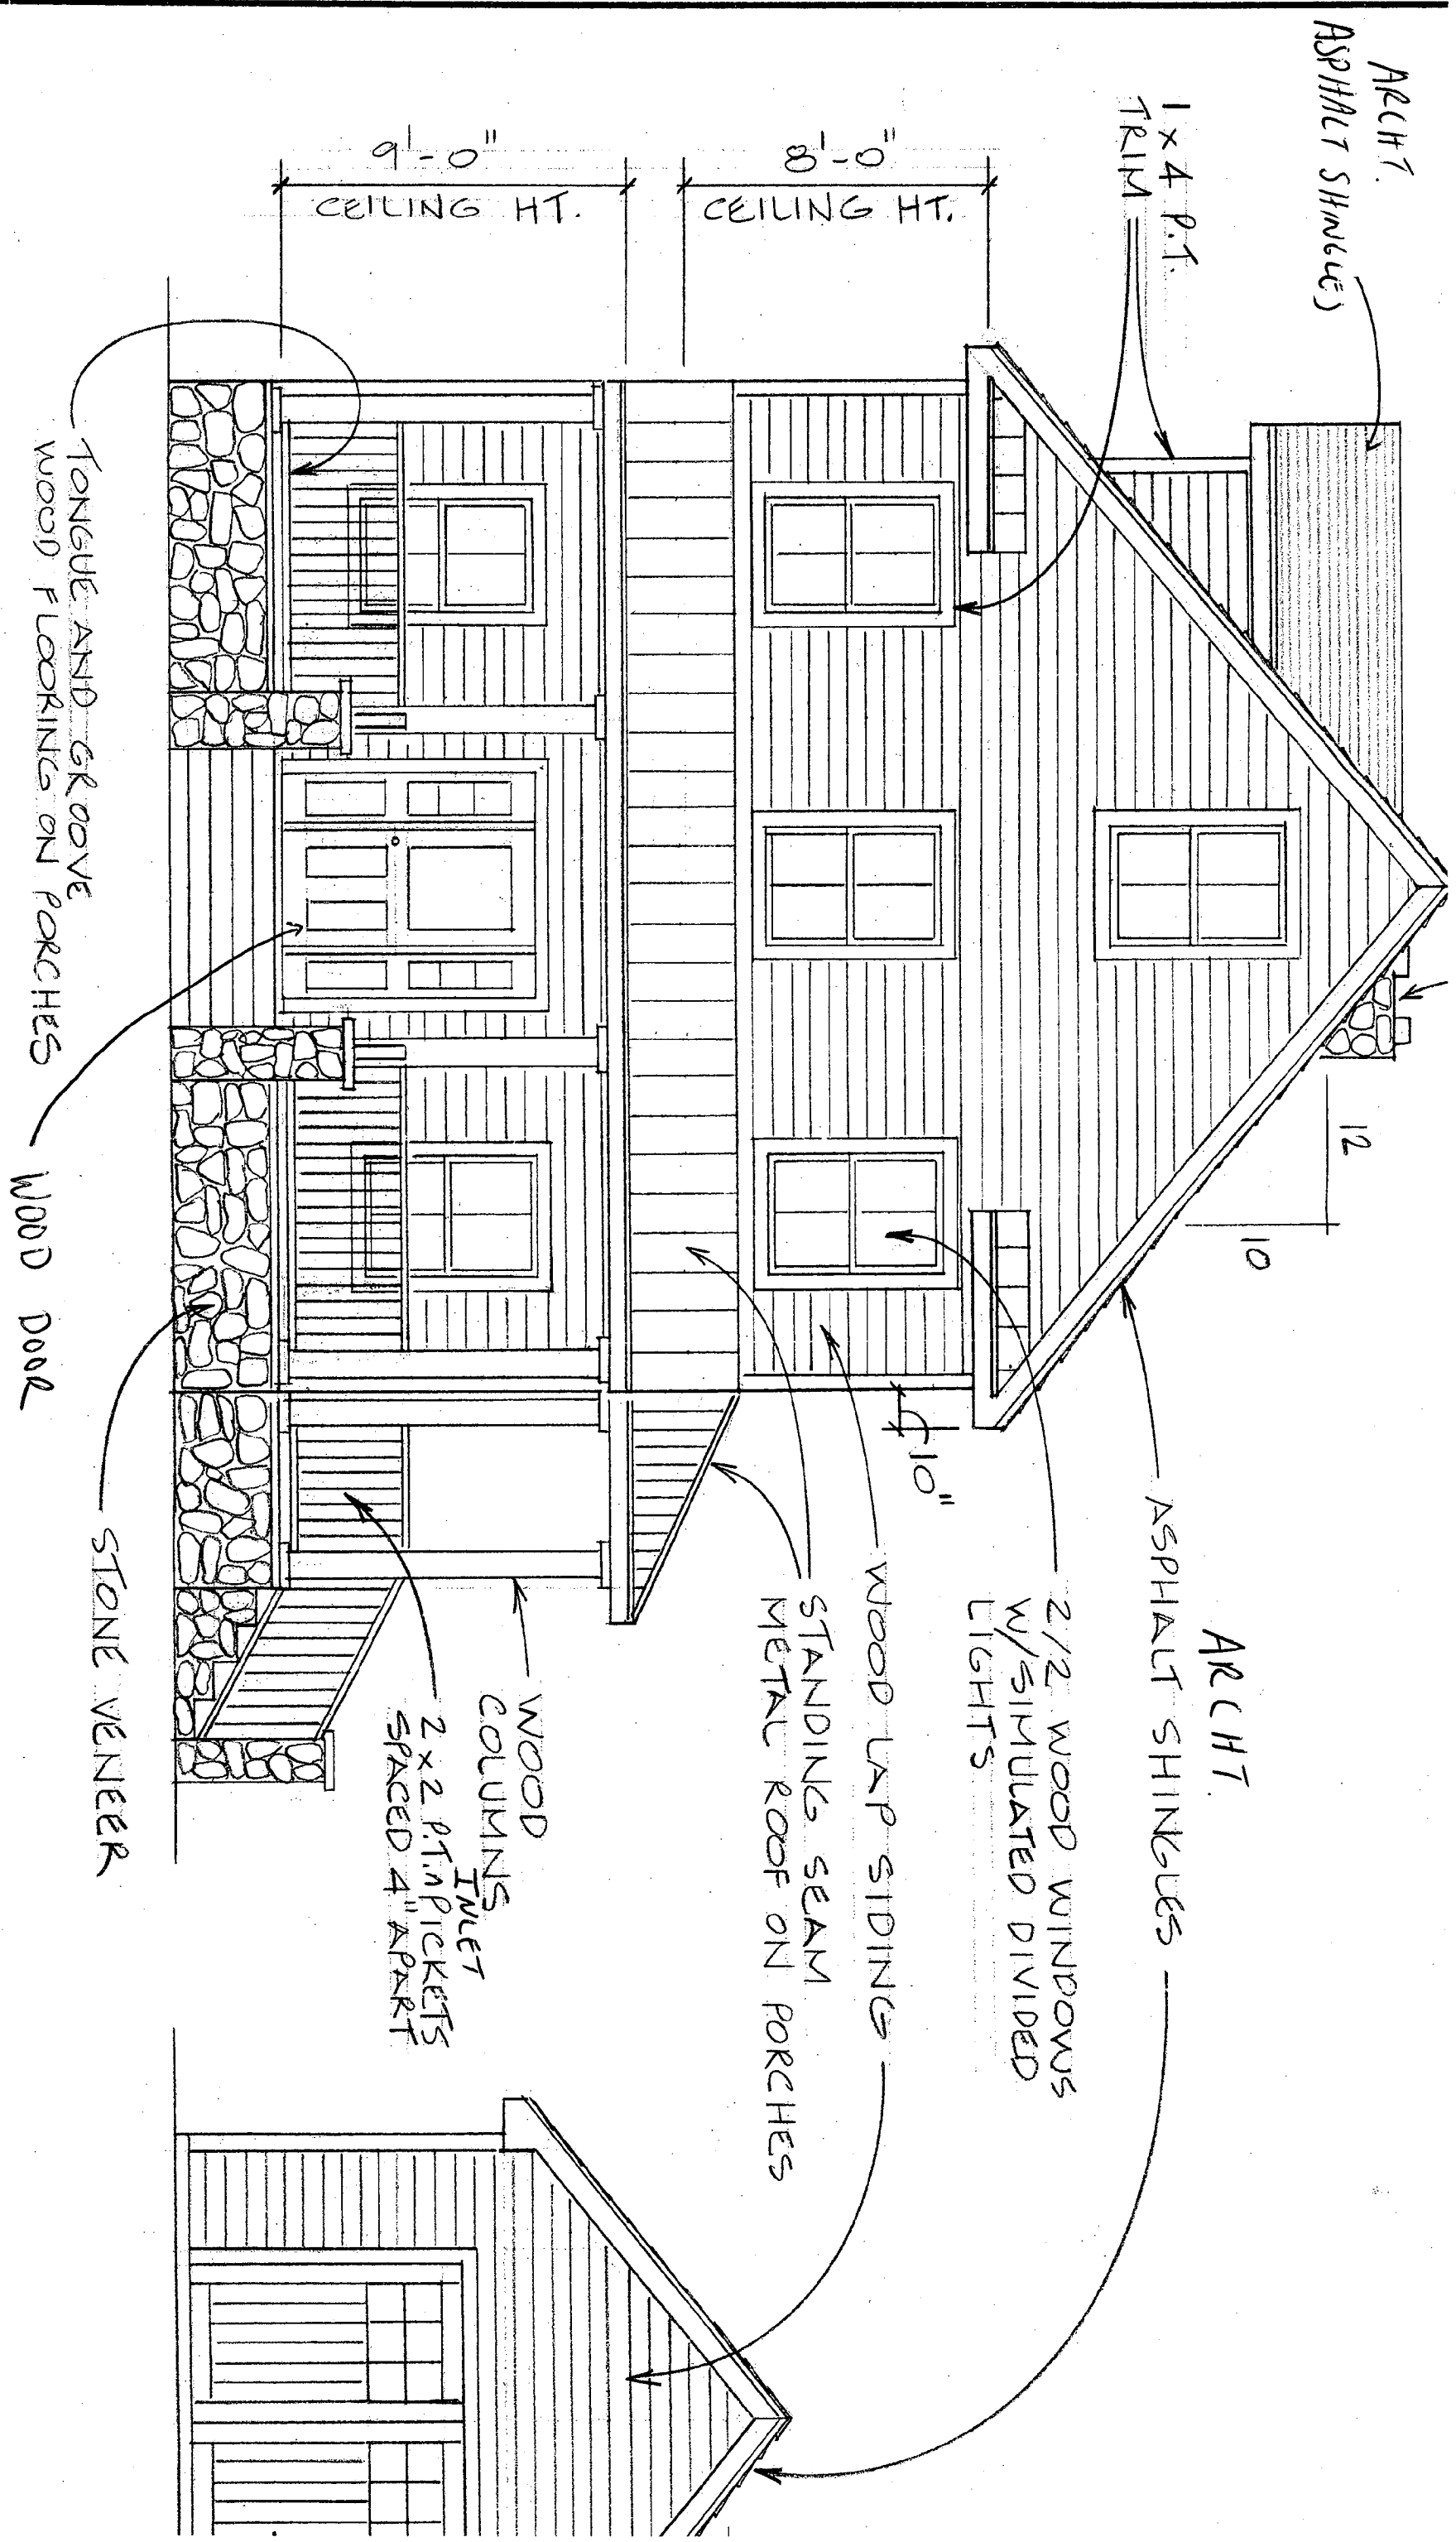 ARCHT.
ASPHALT SHINGLES
1 x 4 P.T.
TRIM
8'-0"
CEILING HT.
9'-0"
CEILING HT.
12
10
10"
ARCHT.
ASPHALT SHINGLES
2/2 WOOD WINDOWS
W/SIMULATED DIVIDED
LIGHTS
WOOD LAP SIDING
STANDING SEAM
METAL ROOF ON PORCHES
WOOD
COLUMNS
INLET
2 x 2 P.T.^PICKETS
SPACED 4" APART
TONGUE AND GROOVE
WOOD FLOORING ON PORCHES
WOOD DOOR
STONE VENEER